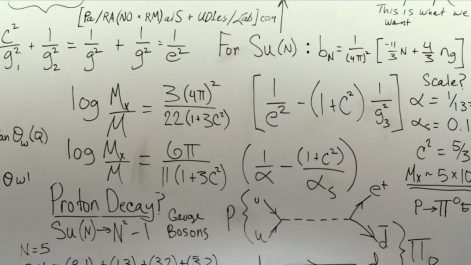 This is what we
want
c²/g₁² + 1/g₂² = 1/g² + 1/g² = 1/e²
For Su(N) : b_N = 1/(4π)² [-11/3 N + 4/3 n_g]
Scale?
log Mx/M = 3(4π)²/22(1+3c²) [1/e² - (1+c²) 1/g₃²]
α = 1/13
αs = 0.1
θw(Q)
log Mx/M = 6π/11(1+3c²) (1/α - (1+c²)/αs)
c² = 5/3
θw!
Mx ~ 5×10
Proton Decay?
Su(N) → N²-1 Gauge
Bosons
P { u u
e⁺
d̄ } π₀
P → π⁰e
N=5